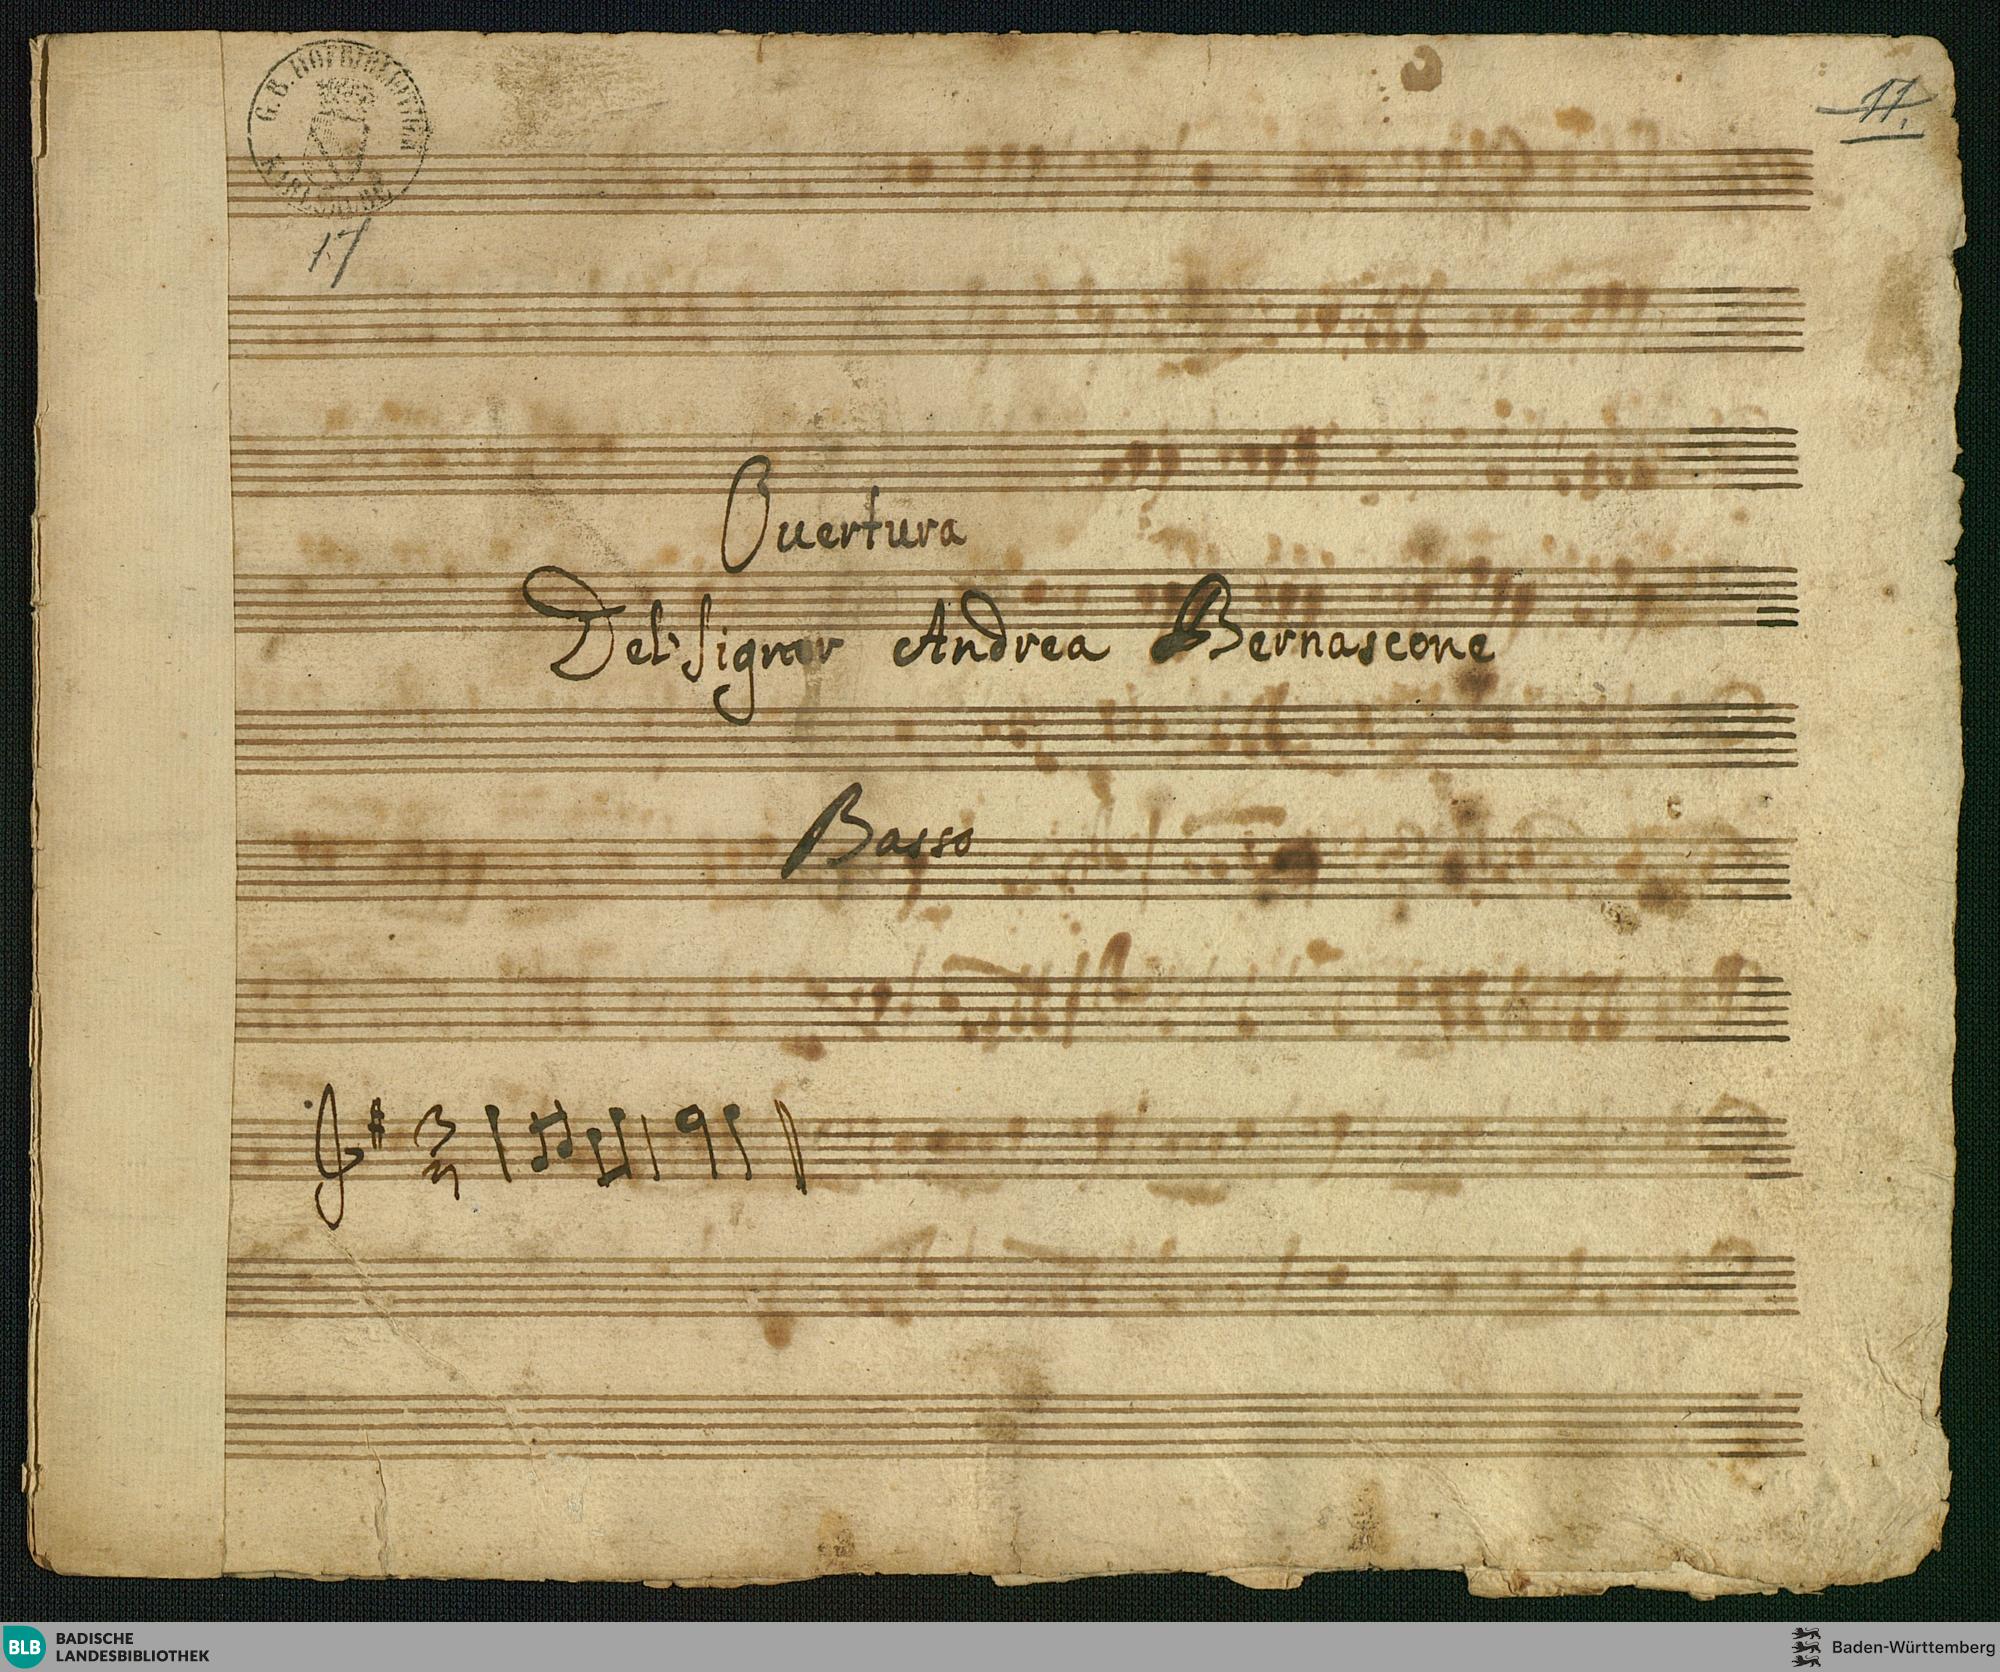 G. B. HOFBIBLIOTHEK
KARLSRUHE
17
11.
Ouertura
Del Signor Andrea Bernascone
Basso
BLB
BADISCHE
LANDESBIBLIOTHEK
Baden-Württemberg